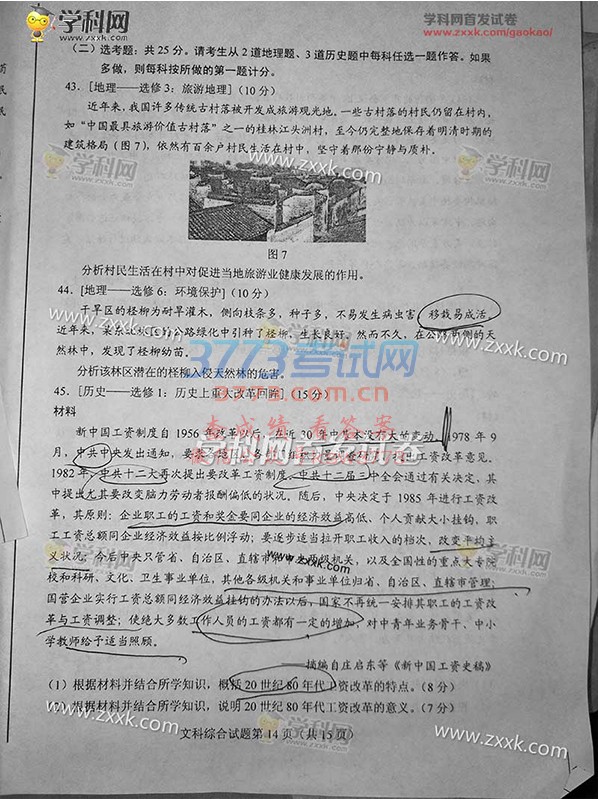 学科网
学科网首发试卷
www.zxxk.com/gaokao/
（二）选考题：共 25 分。请考生从 2 道地理题、3 道历史题中每科任选一题作答。如果
多做，则每科按所做的第一题计分。
43.［地理——选修 3：旅游地理］（10 分）
近年来，我国许多传统古村落被开发成旅游观光地。一些古村落的村民仍留在村内，
如“中国最具旅游价值古村落”之一的桂林江头洲村，至今仍完整地保存着明清时期的
建筑格局（图 7），依然有百余户村民生活在村中，坚守着那份宁静与质朴。
www.zxxk.com
学科网
图 7
分析村民生活在村中对促进当地旅游业健康发展的作用。
44.［地理——选修 6：环境保护］（10 分）
干旱区的柽柳为耐旱灌木，侧向枝条多，种子多，不易发生病虫害，移栽易成活。
近年来，某东北林区的公路绿化中引种了柽柳，生长良好。然而不久，在公路两侧的天
然林中，发现了柽柳幼苗。
3773考试网
www.zxxk.com
分析该林区潜在的柽柳入侵天然林的危害。
3773.com.cn
45.［历史——选修 1：历史上重大改革回眸］（15 分）
材料
查成绩 看答案
学科网首发试卷
新中国工资制度自 1956 年改革以后，在近 30 年中基本没有大的变动。1978 年 9
月，中共中央发出通知，要求各地区、各
工资改革意见。
1982 年，中共十二大再次提出要改革工资制度，中共十二届三中全会通过有关决定，其
中提出尤其要改变脑力劳动者报酬偏低的状况。随后，中央决定于 1985 年进行工资改
革，其原则：企业职工的工资和奖金要同企业的经济效益高低、个人贡献大小挂钩，职
工工资总额同企业经济效益按比例浮动；要逐步适当拉开职工收入的档次，改变平均主
义状况；今后中央只管省、自治区、直辖市和中央两级机关，以及全国性的重点大专院
校和科研、文化、卫生事业单位，其他各级机关和事业单位归省、自治区、直辖市管理；
国营企业实行工资总额同经济效益挂钩的办法以后，国家不再统一安排其职工的工资改
革与工资调整；使绝大多数工作人员的工资都有一定的增加，对中青年业务骨干、中小
学教师给予适当照顾。
——摘编自庄启东等《新中国工资史稿》
（1）根据材料并结合所学知识，概括 20 世纪 80 年代工资改革的特点。（8 分）
（2）根据材料并结合所学知识，说明 20 世纪 80 年代工资改革的意义。（7 分）
文科综合试题第 14 页（共 15 页）
www.zxxk.com
学科网
www.zxxk.com